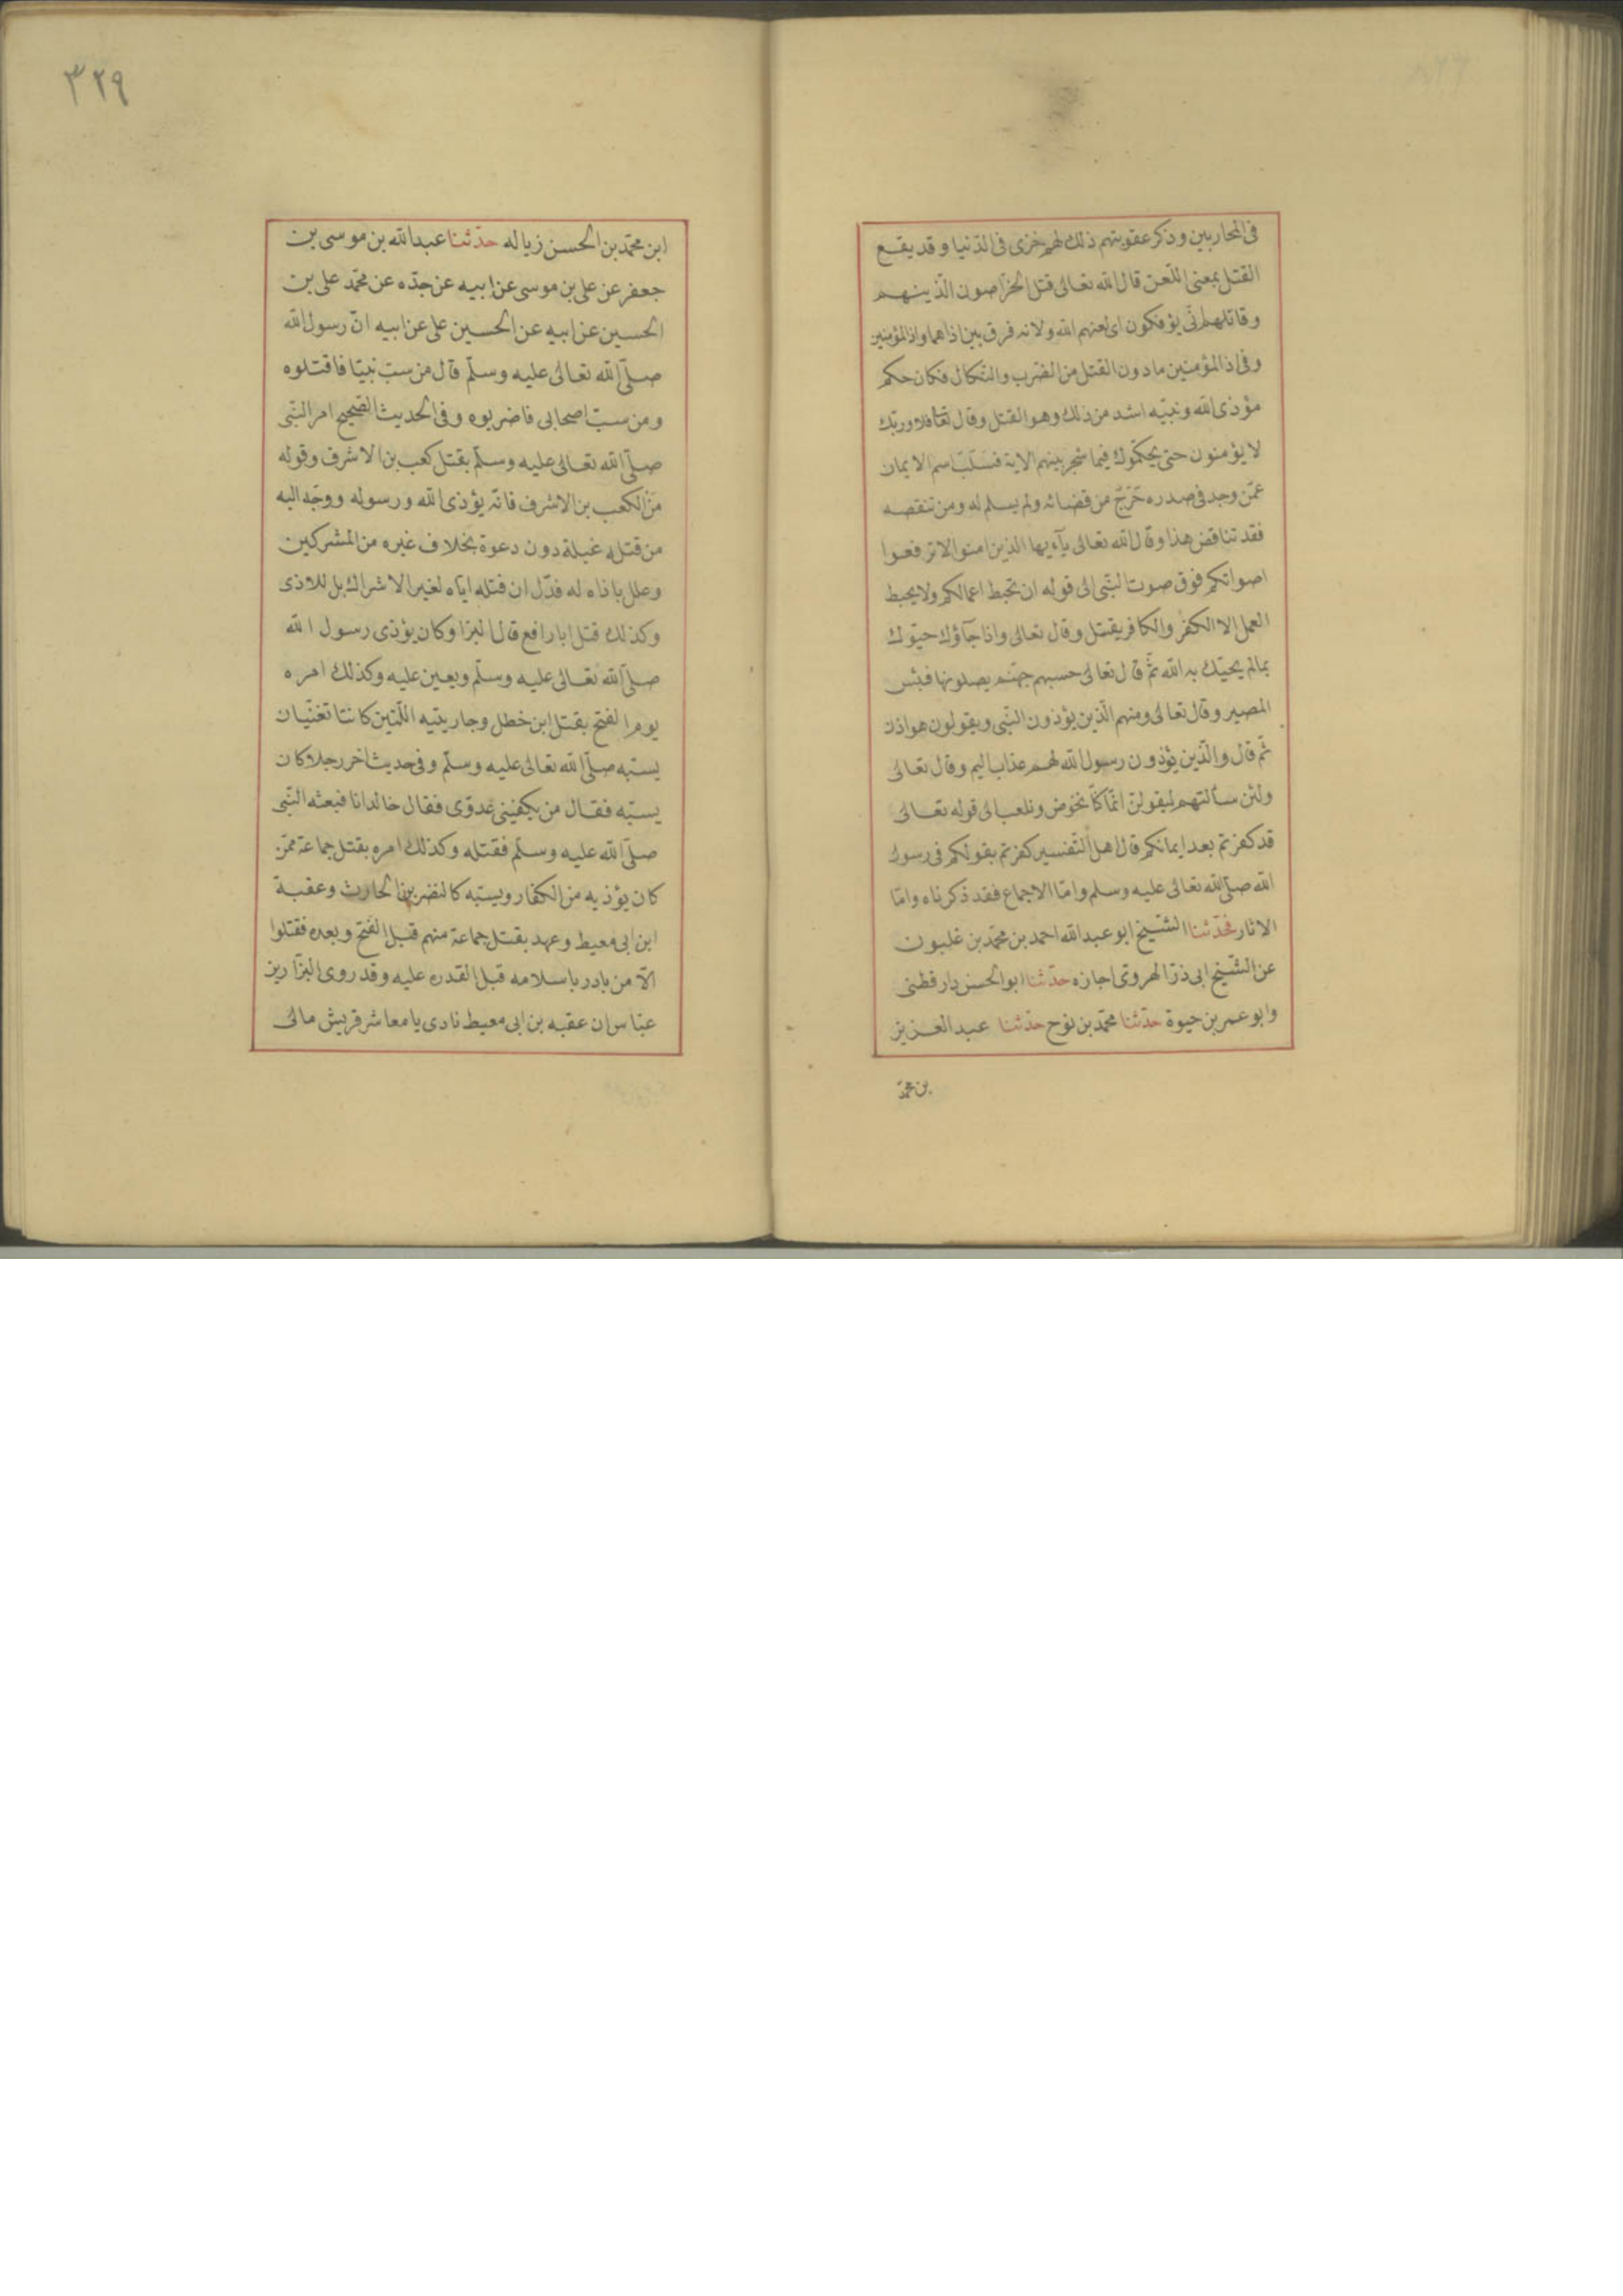 فى المحاربين وذكر عقوبتهم ذلك لهم خزى فى الدّنيا وقد يقع
القتل بمعنى اللّعن قال الله تعالى قتل الخرّاصون الّذينهم
وقاتلهم انّى يؤفكون اى لعنهم الله ولانه فرق بين اذاهما واذ المؤمنين
وفى اذ المؤمنين ما دون القتل من الضرب والنّكال فكان حكم
مؤذى الله ونبيّه اشد من ذلك وهو القتل وقال تعا فلا وربّك
لا يؤمنون حتى يحكّموك فيما شجر بينهم الاية فسلب اسم الايمان
عمّن وجد فى صدره حَرَجٌ من قضائه ولم يسلم له ومن تنقصه
فقد تناقض هذا وقال الله تعالى ياءيها الذين امنوا لا ترفعوا
اصواتكم فوق صوت النّبى الى قوله ان تحبط اعمالكم ولا يحبط
العمل الا الكفر والكافر يقتل وقال تعالى واذا جآؤك حيّوك
بمالم يحيّك به الله ثمّ قال تعالى حسبهم جهنّم يصلونها فبئس
المصير وقال تعالى ومنهم الّذين يؤذون النّبى ويقولون هو اذن
ثمّ قال والّذين يؤذون رسول الله لهم عذاب اليم وقال تعالى
ولئن سألتهم ليقولنّ انّما كنّا نخوض ونلعب الى قوله تعالى
قد كفرتم بعد ايمانكم قال اهل التّفسير كفرتم بقولكم فى رسول
الله صلّى الله تعالى عليه وسلم وامّا الاجماع فقد ذكرناه وامّا
الاثار فحدّثنا الشّيخ ابو عبدالله احمد بن محمّد بن غلبون
عن الشّيخ ابى ذرّ الهروىّ اجازه حدّثنا ابو الحسن دارقطنى
وابو عمر بن حيوة حدّثنا محمّد بن نوح حدّثنا عبد العزيز
بن محمّد
٣٢٩
ابن محمّد بن الحسن زياله حدّثنا عبدالله بن موسى بن
جعفر عن على بن موسى عن ابيه عن جدّه عن محمّد على بن
الحسين عن ابيه عن الحسين على عن ابيه انّ رسول الله
صلّى الله تعالى عليه وسلّم قال من سبّ نبيّا فاقتلوه
ومن سبّ اصحابى فاضربوه وفى الحديث الصّحيح امر النّبى
صلّى الله تعالى عليه وسلّم بقتل كعب بن الاشرف وقوله
مَنْ الكعب بن الاشرف فانّه يؤذى الله ورسوله ووجّه اليه
من قتله غيلة دون دعوة بخلاف غيره من المشركين
وعلل باذاه له فدّل ان قتله ايّاه لغير الاشراك بل للاذى
وكذلك قتل ابا رافع قال البرا وكان يؤذى رسول الله
صلّى الله تعالى عليه وسلّم ويعين عليه وكذلك امره
يوم الفتح بقتل ابن خطل وجاريتيه اللّتين كانتا تغنّيان
يسبّه صلّى الله تعالى عليه وسلّم وفى حديث اخر رجلا كان
يسبّه فقال من يكفينى عدوّى فقال خالد انا فبعثه النّبى
صلّى الله عليه وسلّم فقتله وكذلك امره بقتل جماعة ممّن
كان يؤذيه من الكفار ويسبّه كالنضر بن الحارث وعقبة
ابن ابى معيط وعهد بقتل جماعة منهم قبل الفتح وبعده فقتلوا
الّا من بادر باسلامه قبل القدره عليه وقد روى البزّار بن
عبّاس ان عقبه بن ابى معيط نادى يا معاشر قريش مالى